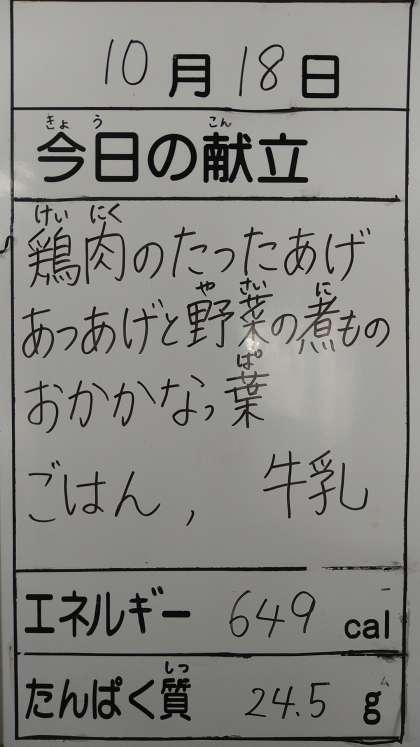 10月18日
きょう こん
今日の献立
けい にく
鶏肉のたったあげ
や さい に
あつあげと野菜の煮もの
ぱ
おかかなっ葉
ごはん, 牛乳
エネルギー 649 cal
しつ
たんぱく質 24.5 g